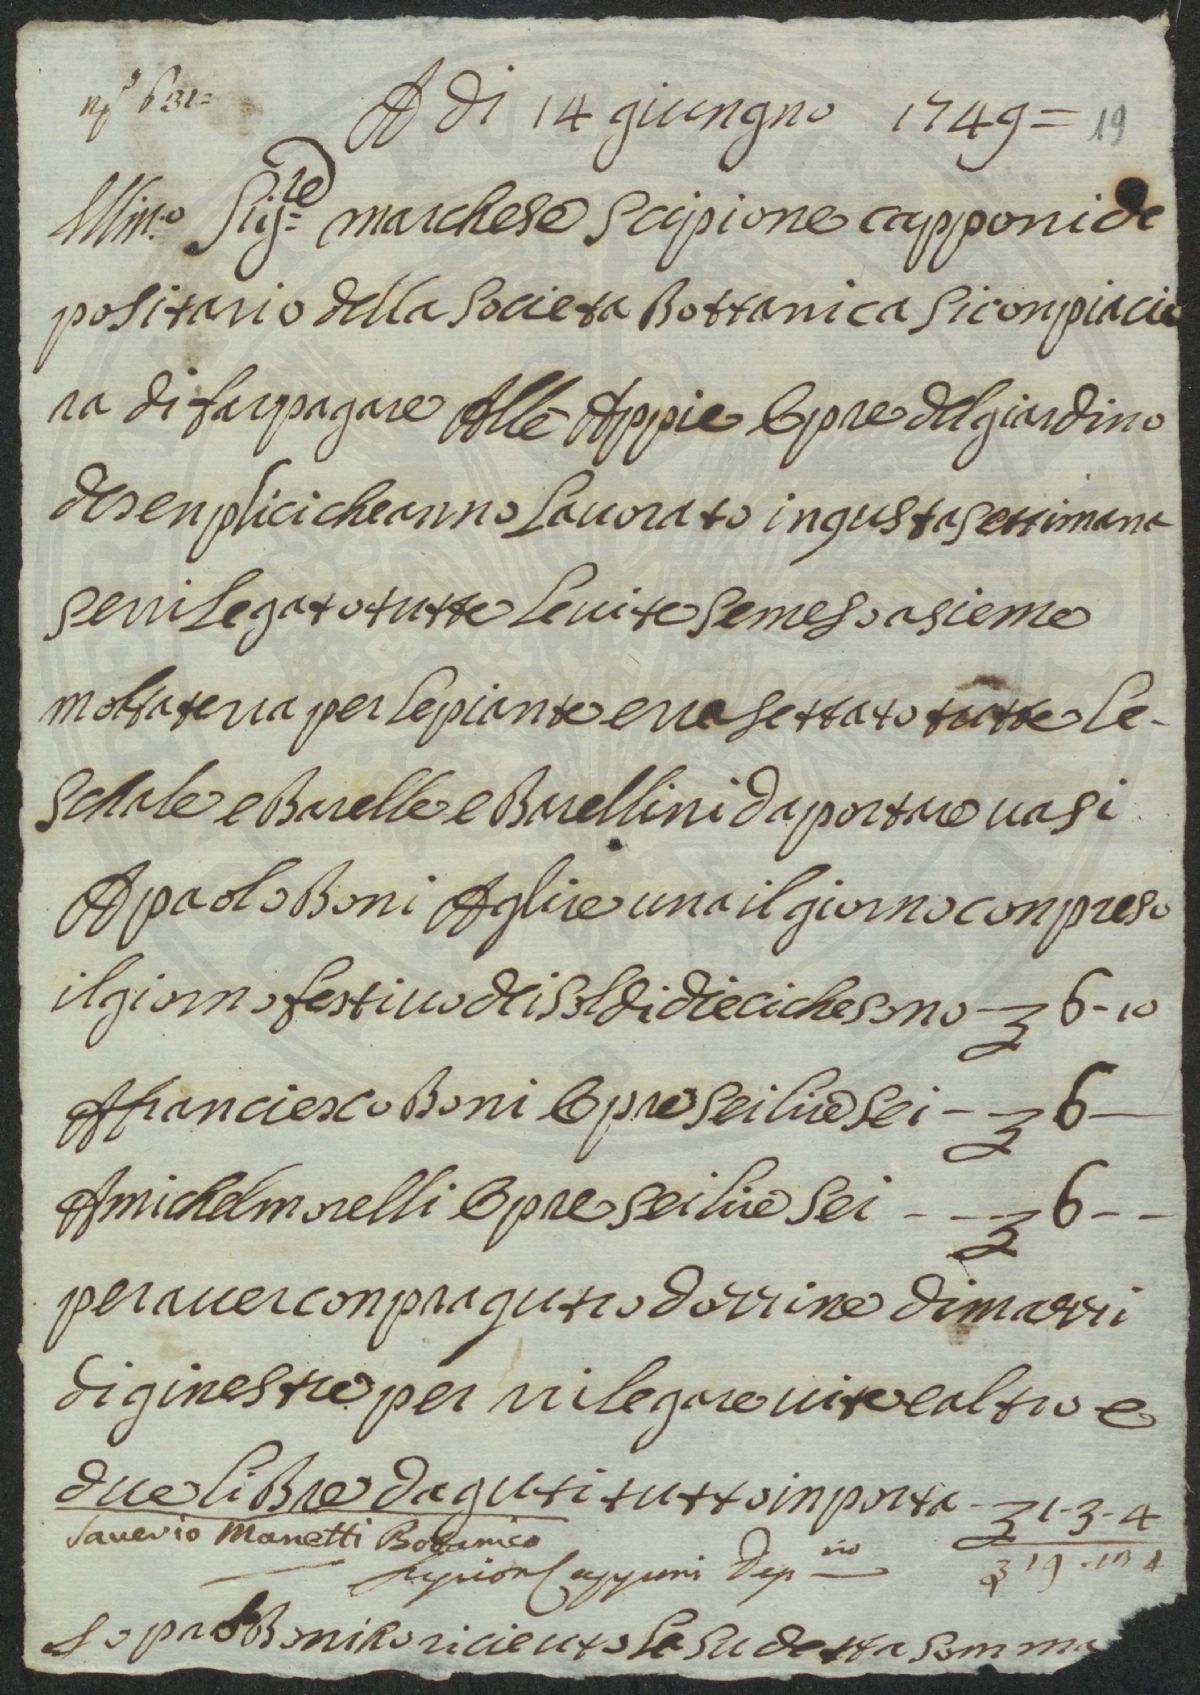 nº 631=
A di 14 giungno 1749= 19
Illm.o Sig.re marchese Scipione capponi de
positario della Societa Bottanica si conpiacie
ra di far pagare Alle Appie Opre del giardino
de senplici che anno Lauorato in qusta settimana
se rilegato tutte le uite se meso asieme
molta terra per le piante e rra settato tutte le-
schale e Barelle e Barellini da portare uasi
A paolo Boni A glire una il giorno conpreso
il giorno festiuo dei soldi dieci che sono - 6-10
A franciesco Boni Opre sei lire sei - 6 —
A michel morelli Opre sei lire sei - - - 6 - -
per auer conpra qutro dozzine di mazzi
di ginestre per rilegare uite e altro e
due libre d aguti tutto inporta - 1-3-4
Sauerio Manetti Botanico
19-13 4
Scipion Capponi Dep.rio
Io paolo Boni Ro ricieuto la su detta somma